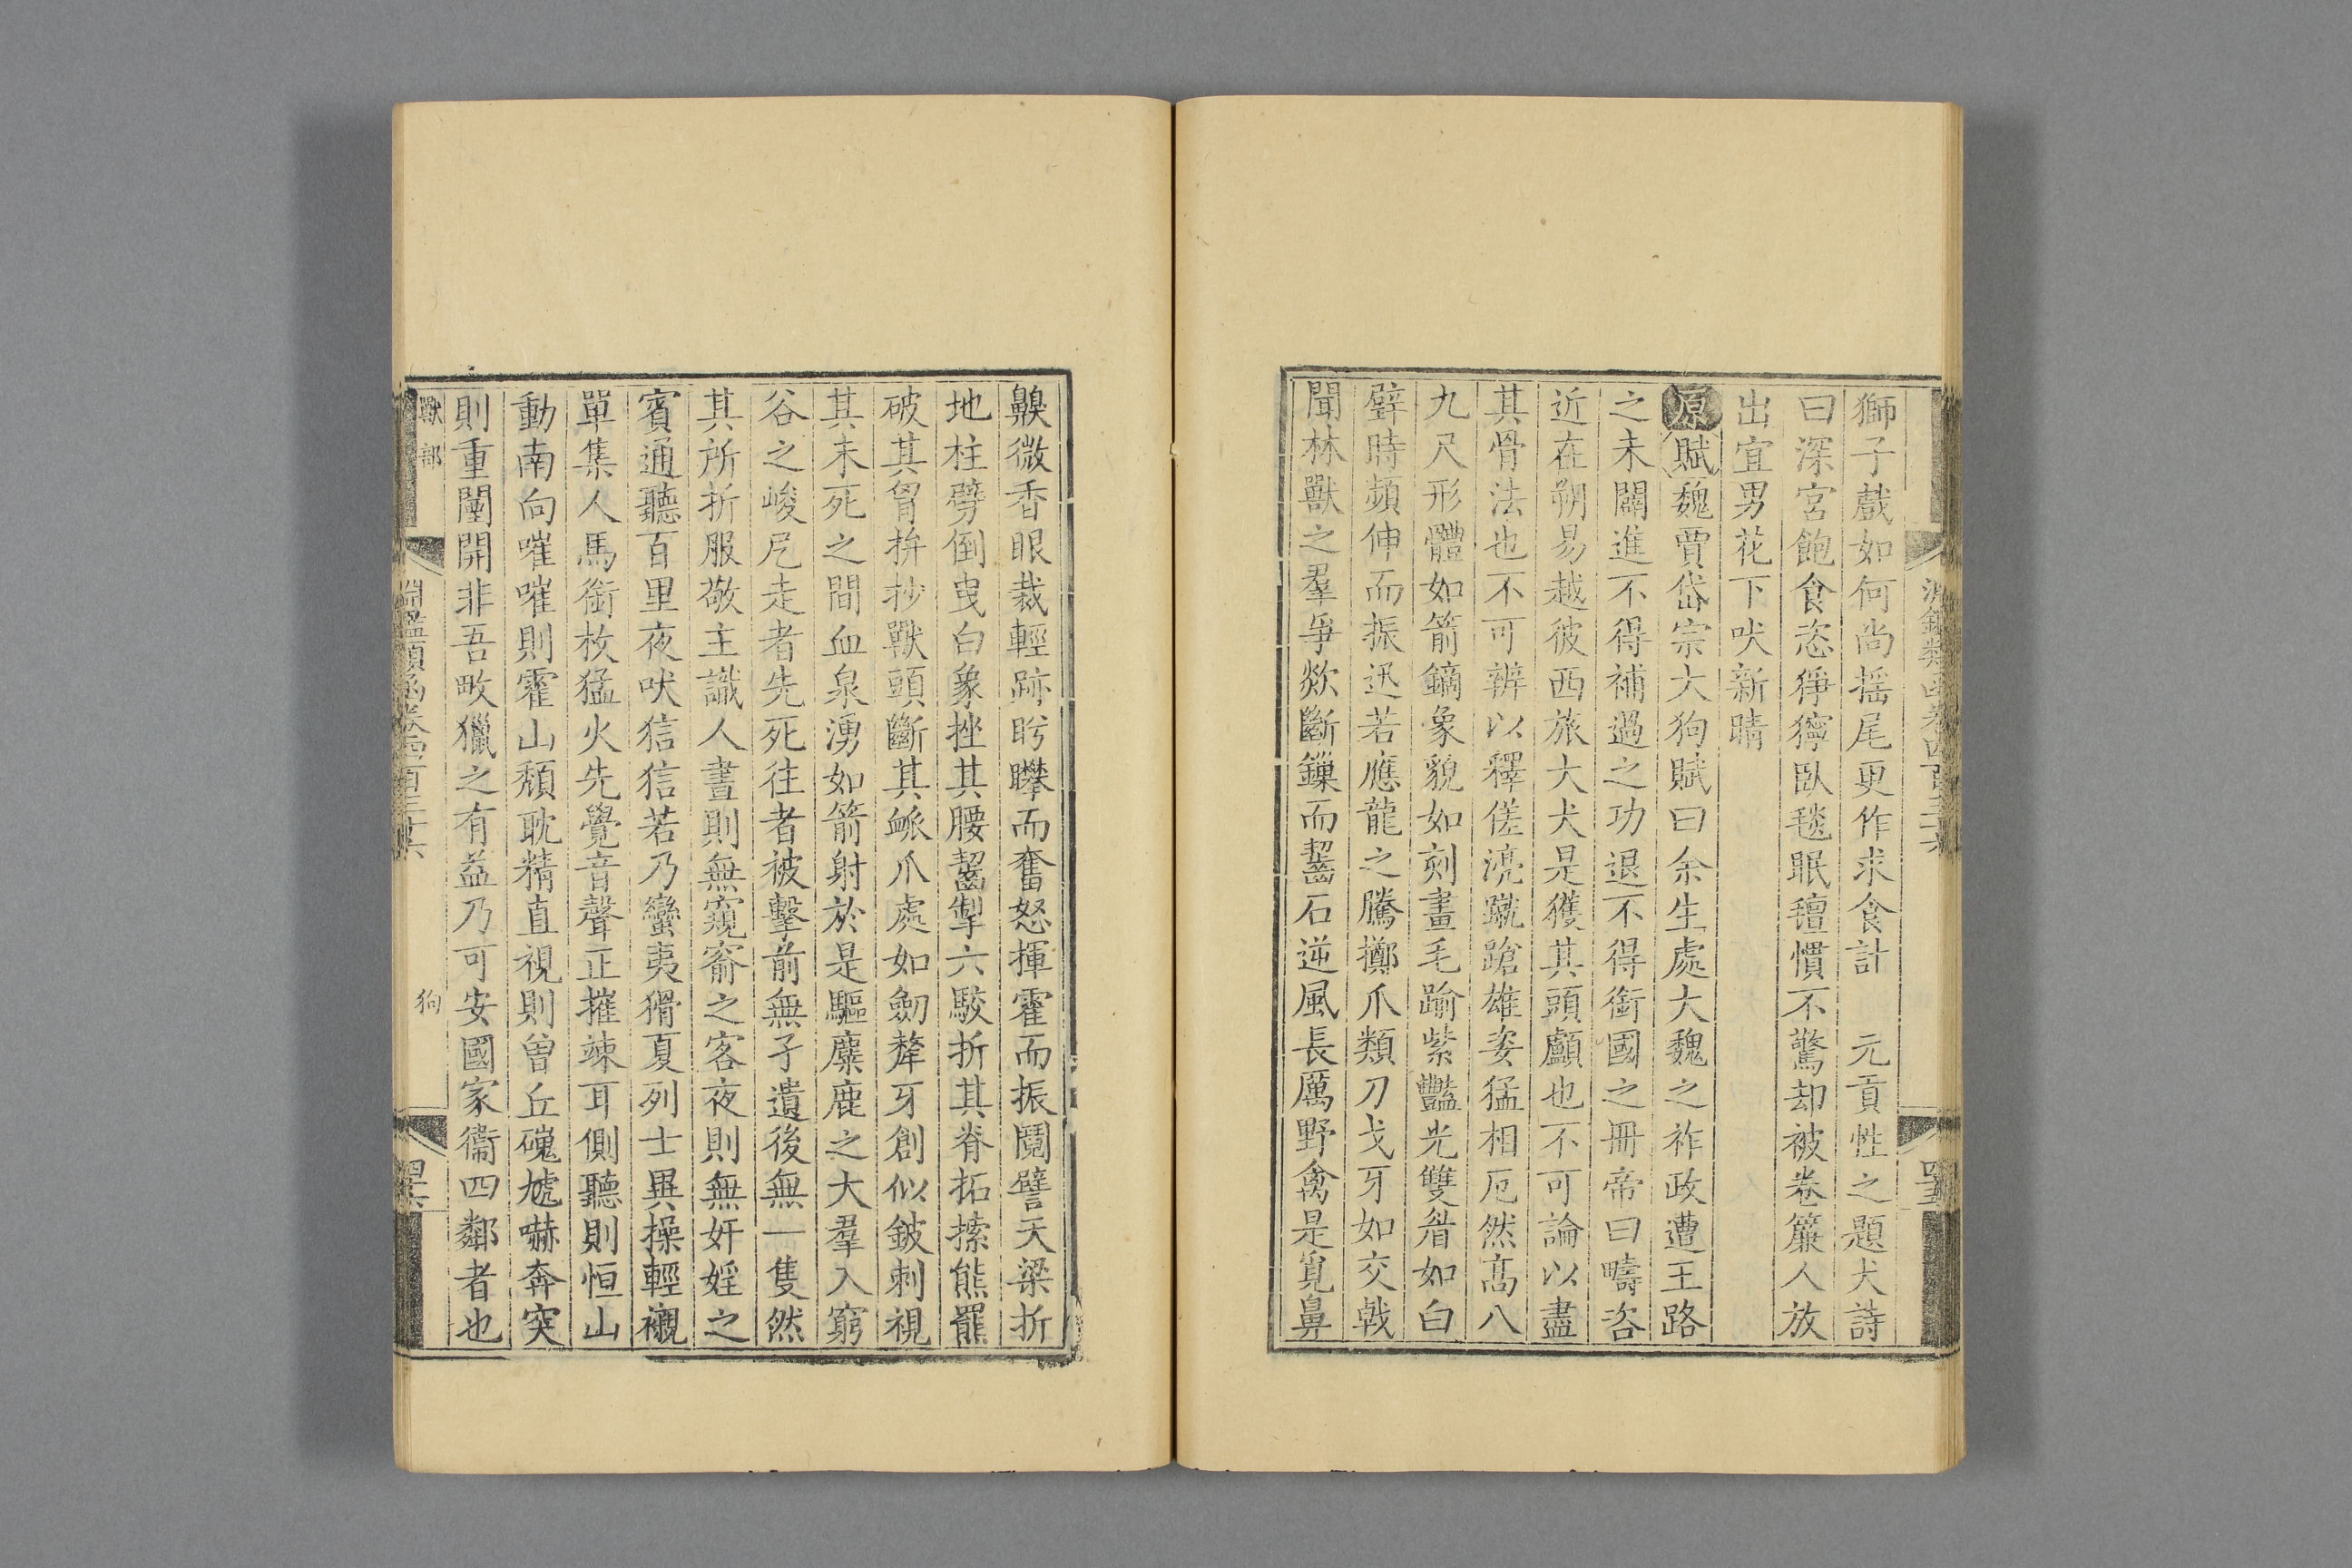 獅子戲如何尚搖尾更作求食計　元貢性之題犬詩
曰深宮飽食恣猙獰臥毯眠氊慣不驚却被卷簾人放
出宜男花下吠新晴
原賦魏賈岱宗大狗賦曰余生處大魏之祚政遭王路
之未闢進不得補過之功退不得銜國之冊帝曰疇咨
近在朔易越彼西旅大犬是獲其頭顱也不可論以盡
其骨法也不可辨以釋傞湸蹴蹌雄姿猛相厄然高八
九尺形體如箭鏑象貌如刻畫毛踰紫豔光雙眉如白
璧時頻伸而振迅若應龍之騰擲爪類刀戈牙如交戟
聞林獸之羣爭欻斷鏁而齧石逆風長厲野禽是覓鼻
齅微香眼裁輕跡盻矕而奮怒揮霍而振鬭譬天梁折
地柱劈倒曳白象挫其腰齧掣六駮折其脊拓搸熊羆
破其胷拚抄獸頭斷其䘑爪處如劒𠢐牙創似鈹刺視
其未死之間血泉湧如箭射於是驅麋鹿之大羣入窮
谷之峻凥走者先死往者被擊前無孑遺後無一隻然
其所折服敬主識人晝則無窺窬之客夜則無奸婬之
賓通聽百里夜吠狺狺若乃蠻夷猾夏列士異操輕襯
單集人馬銜枚猛火先覺音聲正摧竦耳側聽則恒山
動南向嗺嗺則霍山頹眈精直視則曾丘磈虓嚇奔突
則重闉開非吾畋獵之有益乃可安國家衞四鄰者也
獸部
淵鑑類函卷四百三十六
狗